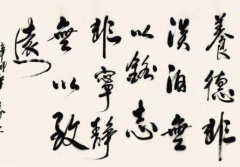 養德非
淡泊無
以銘志
非寧靜
無以致
遠
辛卯